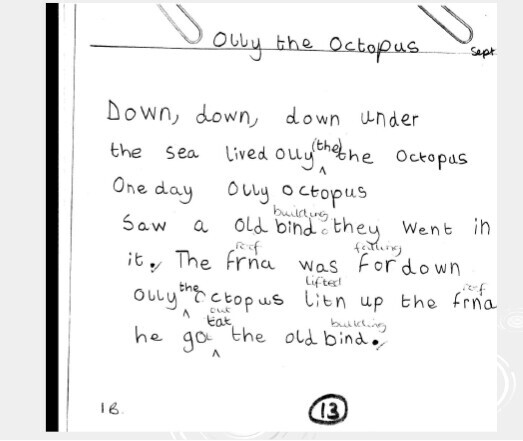 Olly the Octopus
Sept
Down, down, down under
the sea lived Olly (the) the Octopus
One day Olly octopus
building
Saw a old bind. they Went in
roof falling
it. The frna was for down
the lifted roof
Olly octopus litn up the frna
out
tat building
he go the old bind.
1B. 13